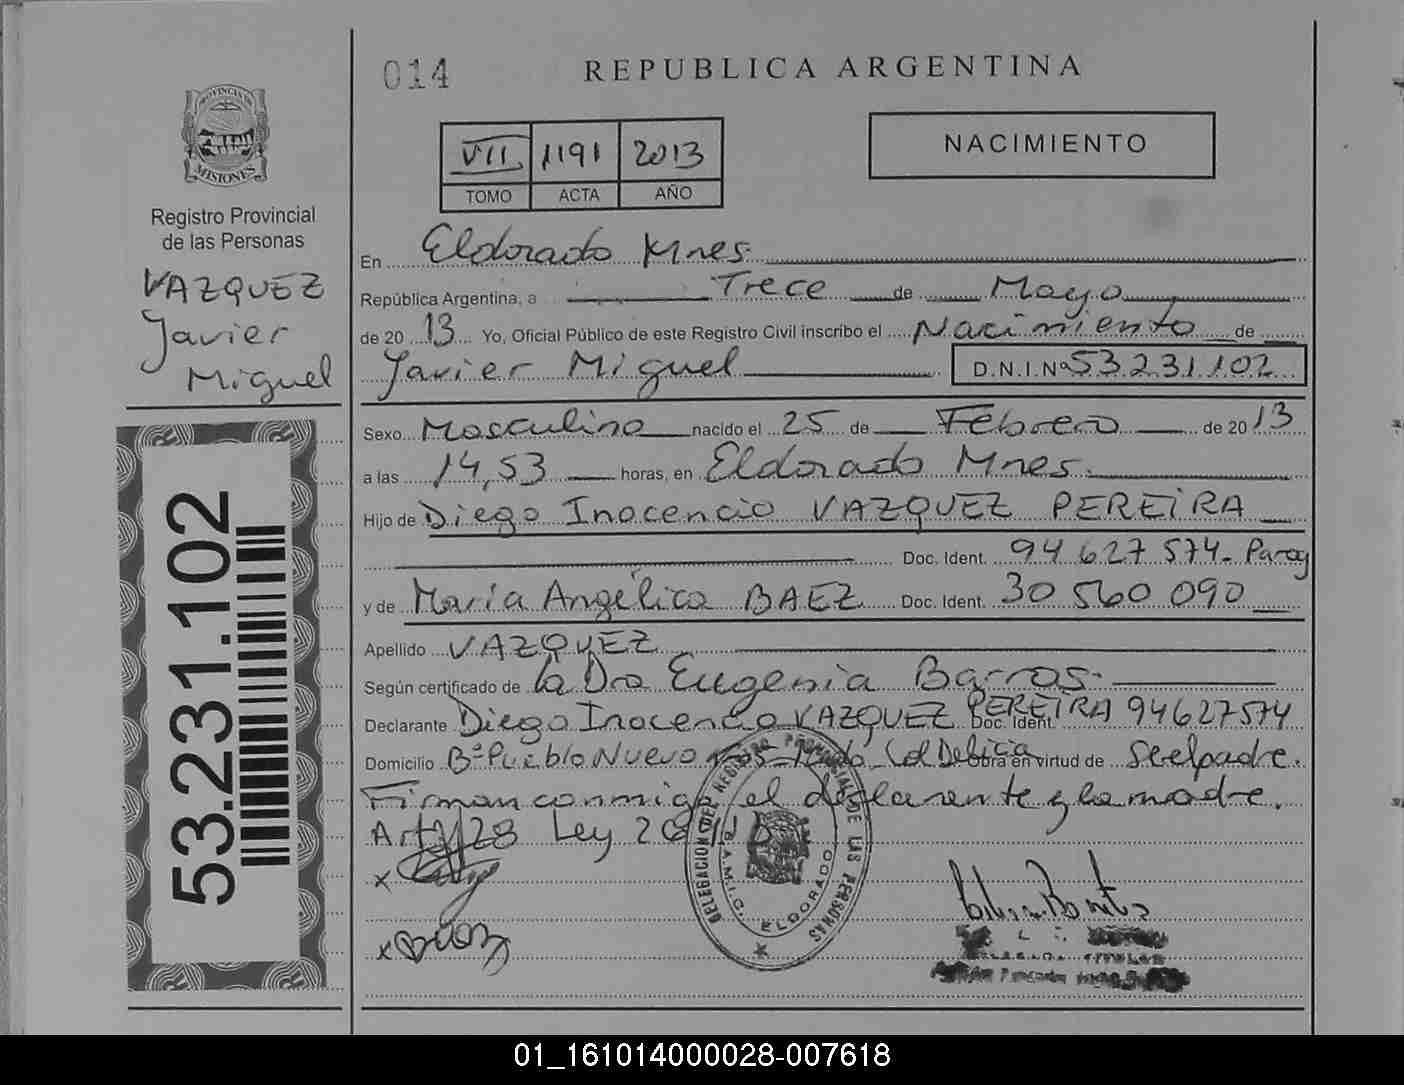 014
REPUBLICA ARGENTINA
PROVINCIA DE
MISIONES
Registro Provincial
de las Personas
VAZQUEZ
Javier
Miguel
53.231.102
VII 1191 2013
TOMO ACTA AÑO
NACIMIENTO
En Eldorado Mnes.
República Argentina, a Trece de Mayo
de 20 13 Yo, Oficial Público de este Registro Civil inscribo el Nacimiento de
Javier Miguel D.N.I.Nº 53.231.102
Sexo Masculino nacido el 25 de Febrero de 20 13
a las 14,53 horas, en Eldorado Mnes.
Hijo de Diego Inocencio VAZQUEZ PEREIRA
Doc. Ident. 94 627 574- Parag
y de María Angélica BAEZ Doc. Ident. 30 560 090
Apellido VAZQUEZ
Según certificado de la Dra Eugenia Barros.
Declarante Diego Inocencio VAZQUEZ PEREIRA Doc. Ident. 94627574
Domicilio Bº Pueblo Nuevo Col Delicia obra en virtud de ser el padre.
Firman conmigo el declarante y la madre.
Ley
DELEGACION DEL REGISTRO PROVINCIAL DE LAS PERSONAS
ELDORADO
x
x
01_161014000028-007618